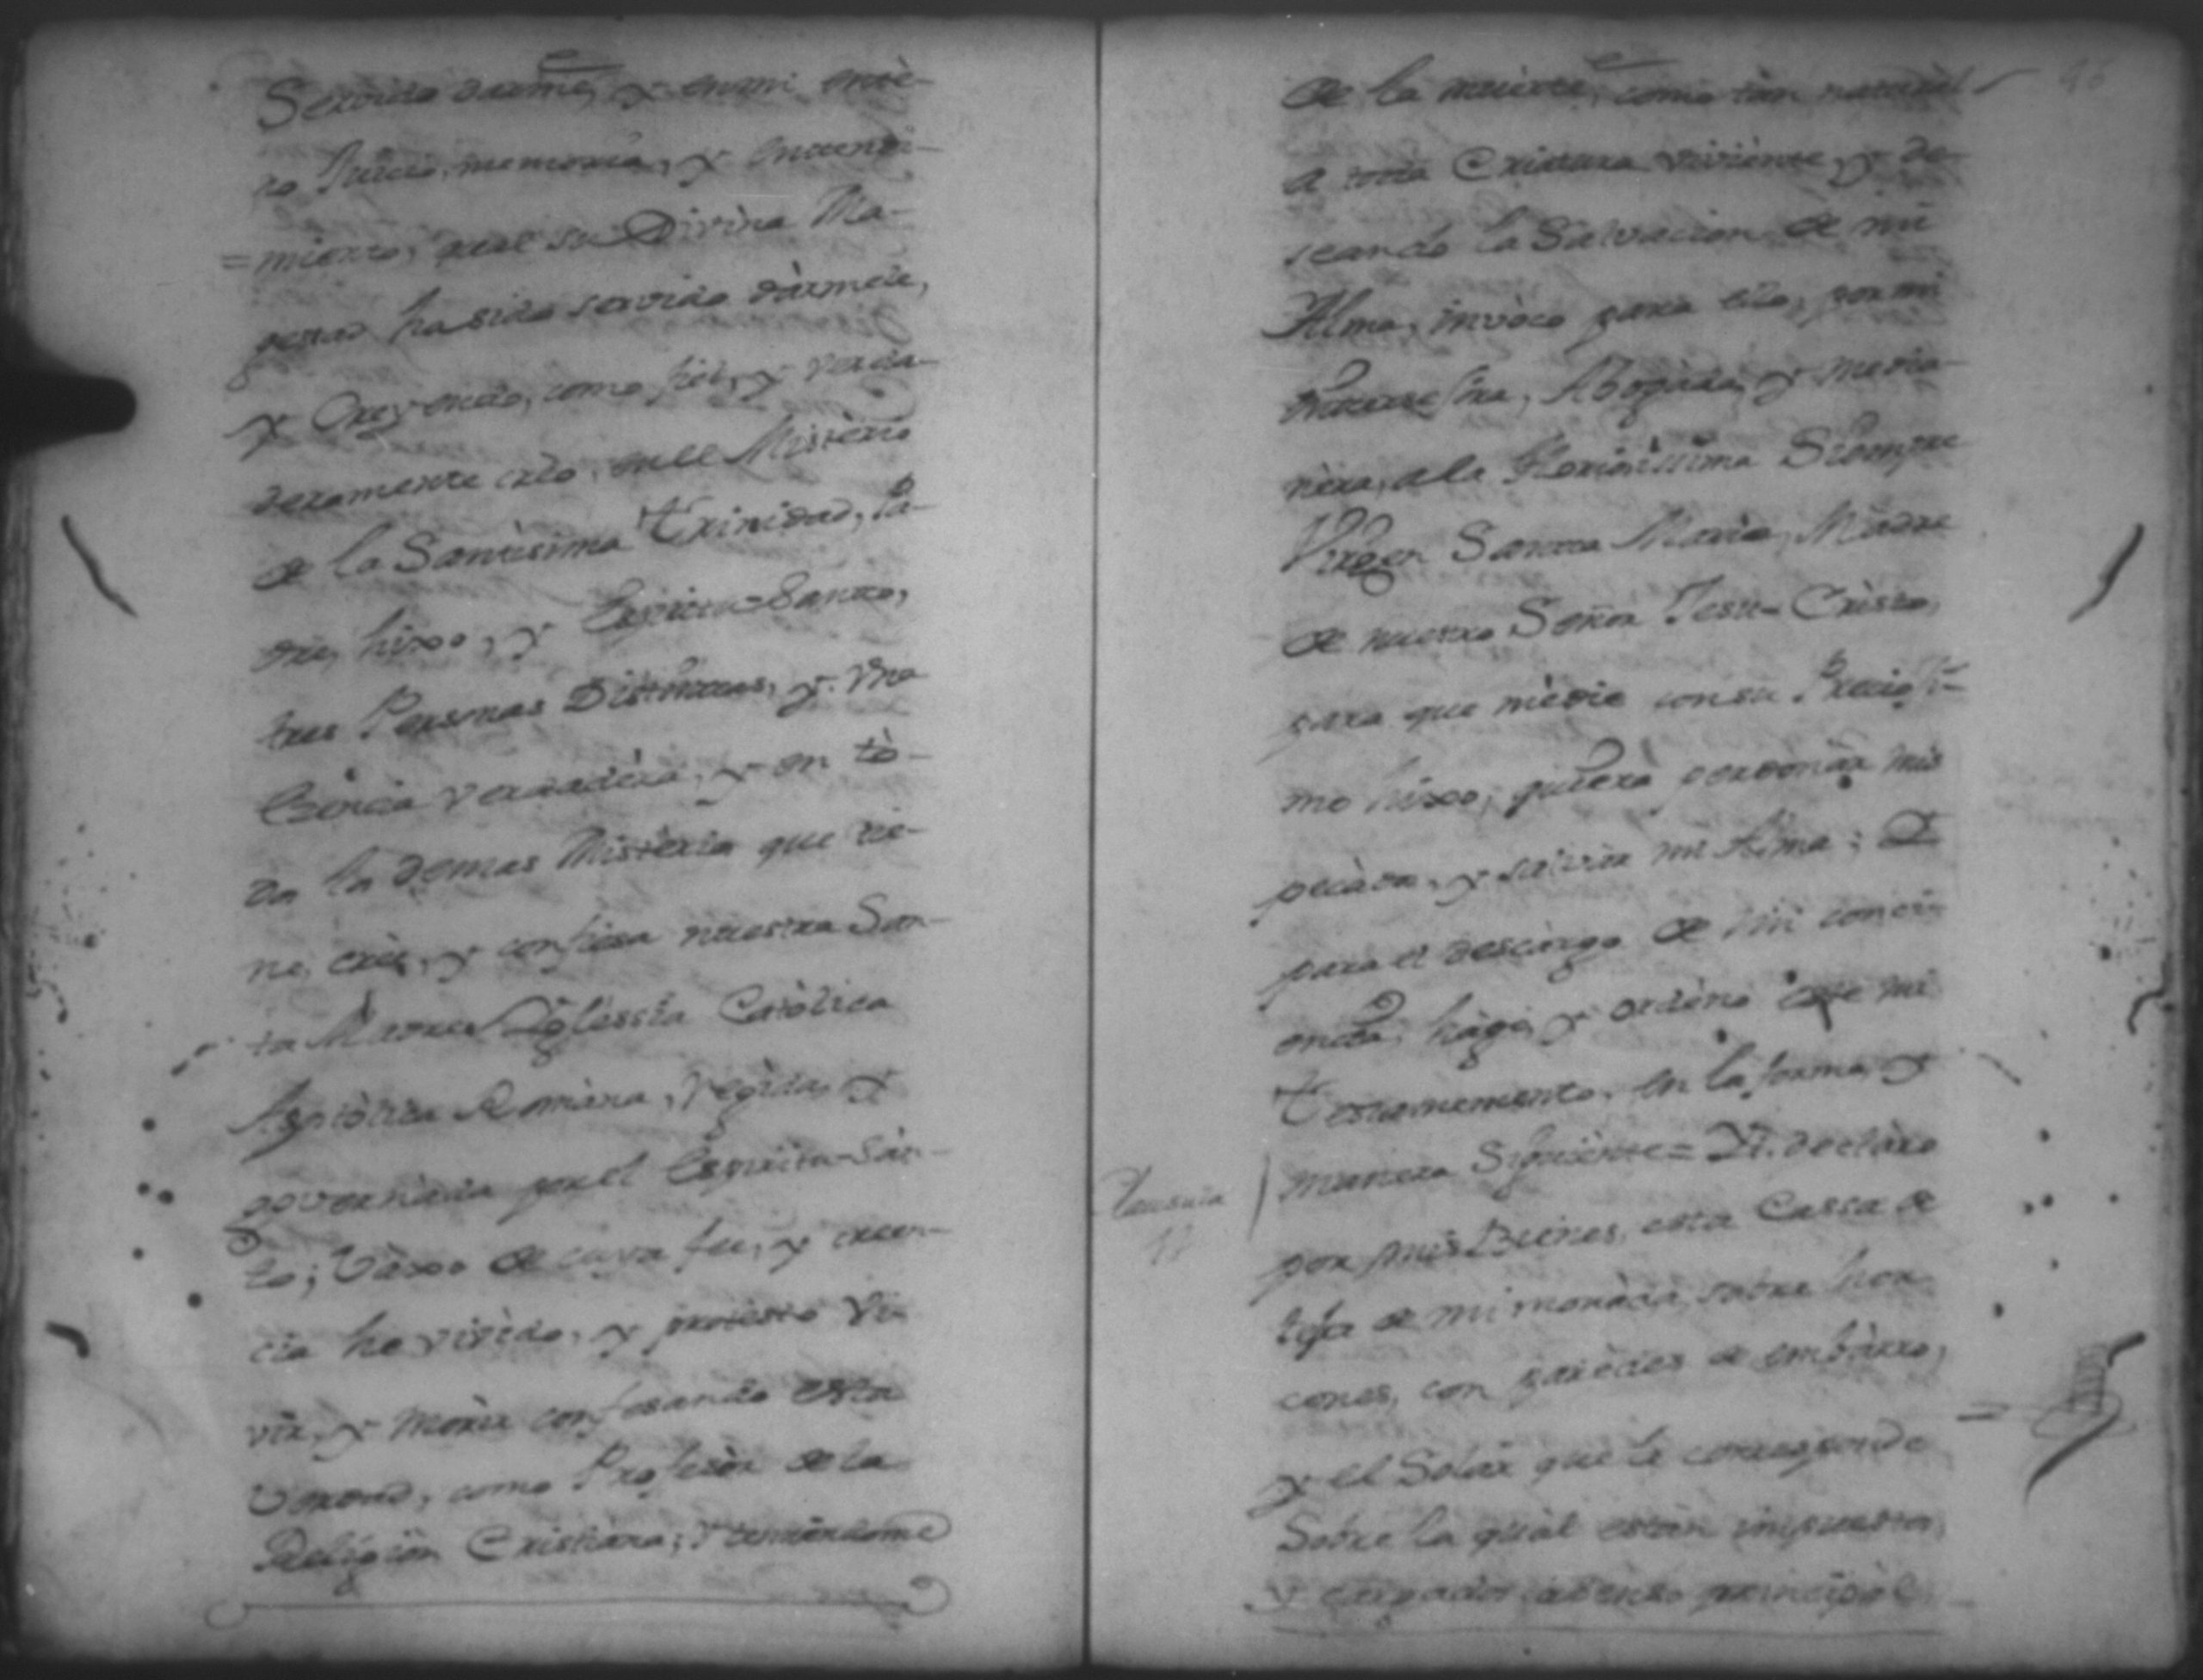 Servido darme, y en mi ente-
ro Juicio, memoria, y Entendi-
=miento, qual su Divina Ma-
gestad ha sido servido dàrmele,
y Creyendo, como fiel, y verda-
deramente crèo, en el Mistèrio
de la Santìsima Trinidad, Pa-
dre, hixo, y Espiritu=Santo,
tres Personas Distintas, y Vna
Esència verdadèra, y en tò-
do lo demas Mistèrio que tie-
ne, crèe, y confiesa nuestra San-
ta Madre Yglessia Catòlica
Apstòlica Romàna, regida, y
governada por el Espiritu-Sàn-
to; Vàxo de cuya fee, y creen-
cia he vivìdo, y protèsto vi-
vir, y morir confesando esta
Verdad, como Profesòr de la
Religiòn Cristiàna; y temièndome
de la muerte, como tàn naturàl
a toda Criatura vivìente, y de-
seando la Salvacion de mi
Alma, invòco para ello, por mi
Yntercesòra, Abogàda, y media-
nèra, a la Serenìssima Siempre
Virgen Santa Marìa, Màdre
de nuestro Señor Jesu-Crìsto,
para que mèdie con su Preciosìsi-
mo hixo, quiera perdonàr mis
pecàdos, y salvàr mi Alma; Y
para el descàrgo de mi conci-
encia, hàgo, y ordèno este mi
Testamemento, en la forma, y
manera Siguiente= Yt. declàro
Clausula
por mis Bienes, esta Cassa de
teja de mi moràda, sobre hor-
cones, con parèdes de embàrro,
y el Solàr que le corresponde
Sobre la quàl estàn impuestos,
y cargados principàl